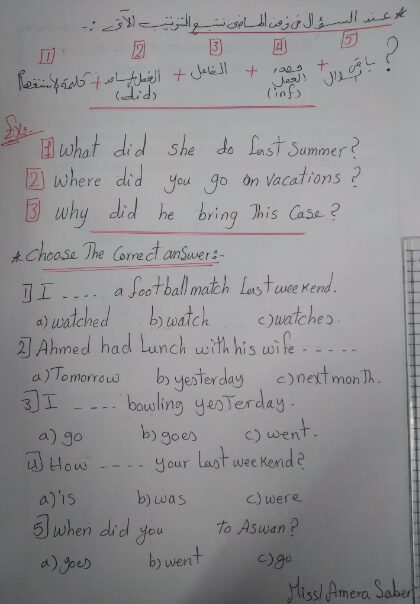 * عند السؤال فى زمن الماضى نتبع الترتيب الآتى :-
1 2 3 4 5
كلمة الاستفهام + الفعل المساعد (did) + الفاعل + مصدر الفعل (inf) + باقى السؤال ?
Ex:-
1 What did she do last summer?
2 Where did you go on vacations?
3 Why did he bring This Case?
* Choose The Correct answer:-
1] I .... a football match Last weekend.
a) watched b) watch c) watches.
2] Ahmed had Lunch with his wife .....
a) Tomorrow b) yesterday c) next month.
3] I .... bowling yesterday.
a) go b) goes c) went.
4] How .... your Last weekend?
a) is b) was c) were
5] When did you to Aswan?
a) goes b) went c) go
Miss/ Amera Saber